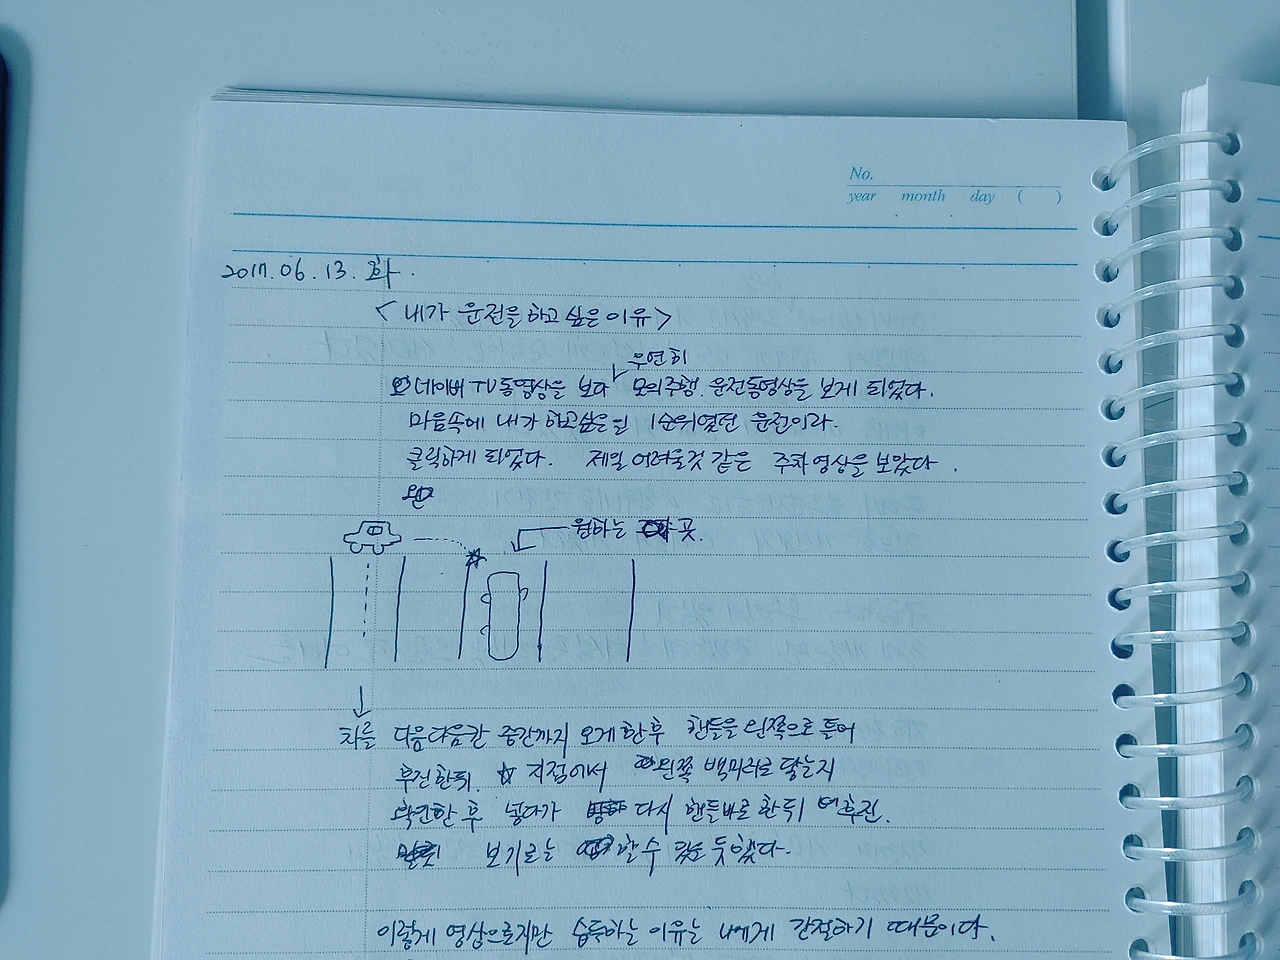 No.
year month day ( )
2017. 06. 13. 화.
< 내가 운전을 하고 싶은 이유 >
우연히
네이버 TV 동영상을 보다 모의주행. 운전동영상을 보게 되었다.
마음속에 내가 하고싶은일 1순위였던 운전이라.
클릭하게 되었다. 제일 어려울것 같은 주차영상을 보았다.
원하는 곳.
차를 다음다음칸 중간까지 오게한후 핸들을 왼쪽으로 틀어
후진한뒤. ☆ 지점에서 왼쪽 백미러로 닿는지
확인한 후 넣다가 다시 핸들바로 한뒤 후진.
보기로는 할수 있을 듯했다.
이렇게 영상으로지만 습득하는 이유는 나에게 간절하기 때문이다.